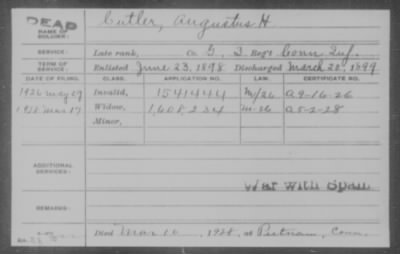 DEAD
NAME OF SOLDIER:
Cutler, Augustus H.
SERVICE:
Late rank, Co. G, 3. Reg't Conn. Inf.
TERM OF SERVICE:
Enlisted June 23, 1898 Discharged March 20, 1899
DATE OF FILING. CLASS. APPLICATION NO. LAW. CERTIFICATE NO.
1926 May 29 Invalid, 1541444 M/26 a 9-16-26
1928 Mar 17 Widow, 1,608,234 M-26 a 5-2-28
Minor,
ADDITIONAL SERVICES:
War with Spain
REMARKS:
Died Mar 10, 1928, at Putnam, Conn.